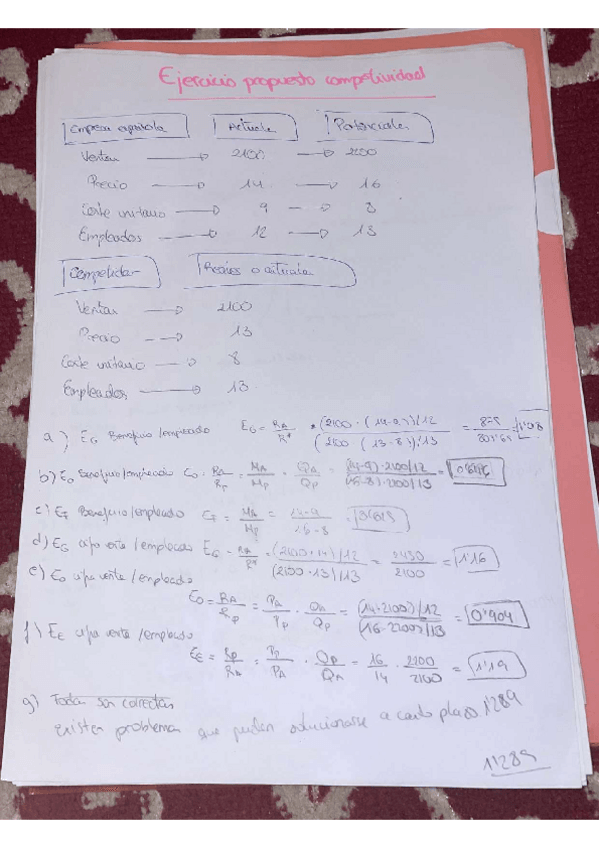 Ejercicio propuesto competividad
Empresa española Actuales Potenciales
Ventas → 2100 → 2100
Precio → 14 → 16
Coste unitario → 9 → 8
Empleados → 12 → 13
Competidor Reales o actuales
Ventas → 2100
Precio → 13
Coste unitario → 8
Empleados → 13
a) EG Beneficio/empleado EG = RA/R* = (2100·(14-9))/12 / (2100 (13-8))/13 = 875/807'69 = 1'08
b) EO Beneficio/empleado EO = RA/RP = MA/MP · QA/QP = (14-9)·2100/12 / (16-8)·2100/13
c) ET Beneficio/empleado ET = MA/MP = 14-9 / 16-8
d) EG cifra venta/empleado EG = RA/R* = (2100·14)/12 / (2100·13)/13 = 2450/2100 = 1'16
e) EO cifra venta/empleado
EO = RA/RP = PA/PP · QA/QP = (14·2100)/12 / (16·2100)/13 = 0'904
f) EE cifra venta/empleado
EE = RP/RA = PP/PA · QP/QA = 16/14 · 2100/2100 = 1'19
g) Todas son correctas
existen problemas que puedan solucionarse a corto plazo 1'289
1'289